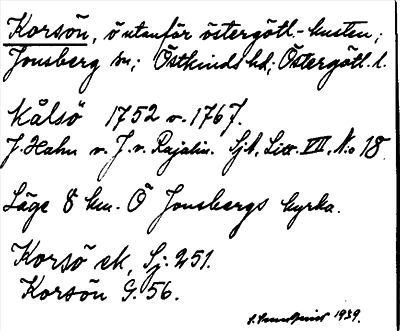 Korsön, ö utanför östergötl.-kusten;
Jonsberg sn; Östkinds hd; Östergötl. l.
Kålsö 1752 o. 1767.
J. Hahn o. J. v. Rajalin. SjA, Litt. VII, No 18.
Läge 8 km. Ö Jonsbergs kyrka.
Korsö ek, Sj: 251.
Korsön G. 56.
1939.